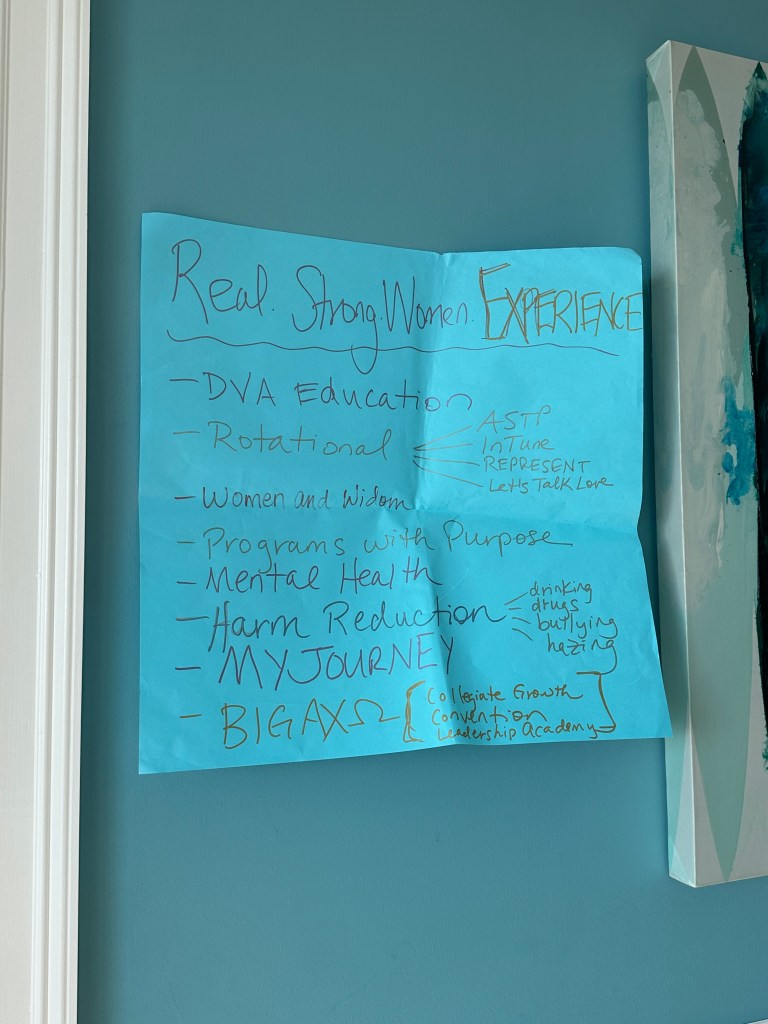 Real. Strong. Women. EXPERIENCE
- DVA Education
- Rotational
ASTP
InTune
REPRESENT
Let's Talk Love
- Women and Widom
- Programs with Purpose
- Mental Health
- Harm Reduction
drinking
drugs
bullying
hazing
- MYJOURNEY
- BIG AXΩ
[Collegiate Growth
Convention
Leadership Academy]